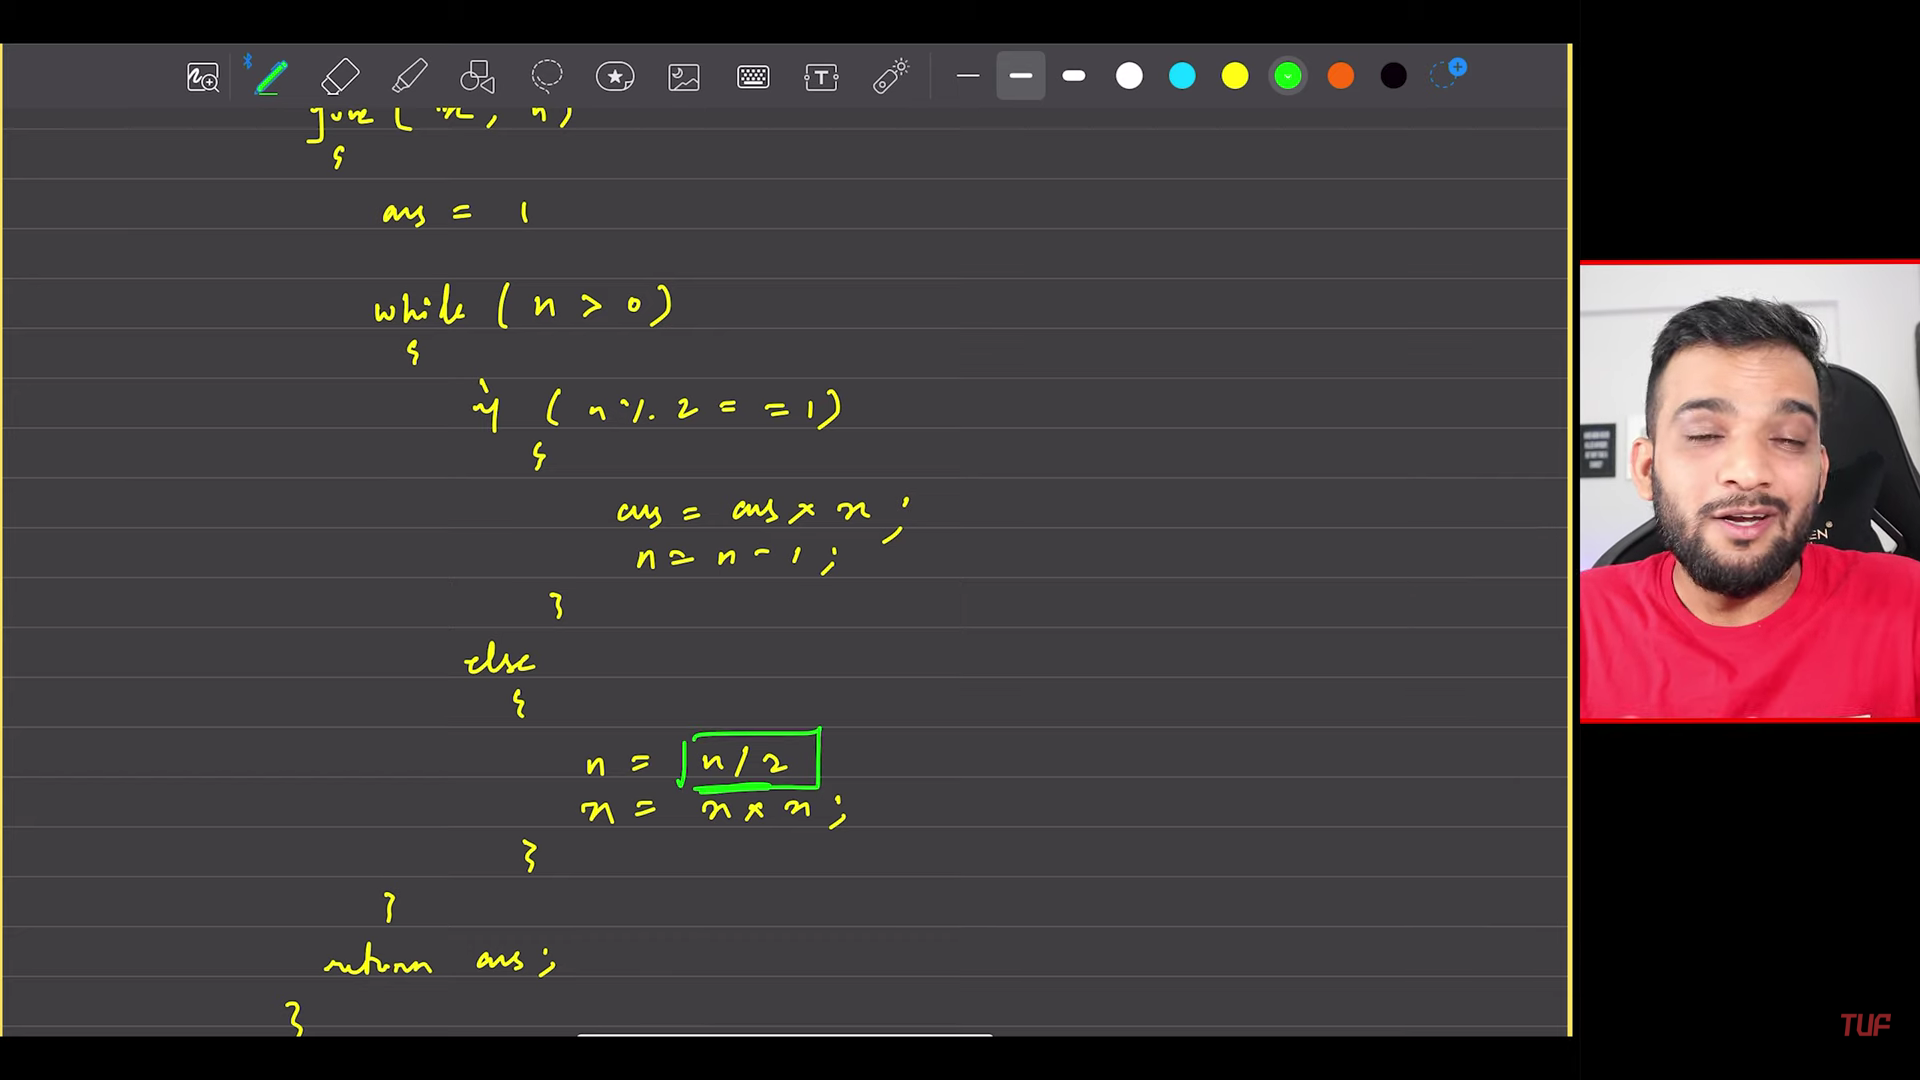 ans = 1
while ( n > 0 )
{
if ( n % 2 = = 1 )
{
ans = ans × x ;
n = n - 1 ;
}
else
{
n = n / 2
x = x × x ;
}
}
return ans ;
}
TUF